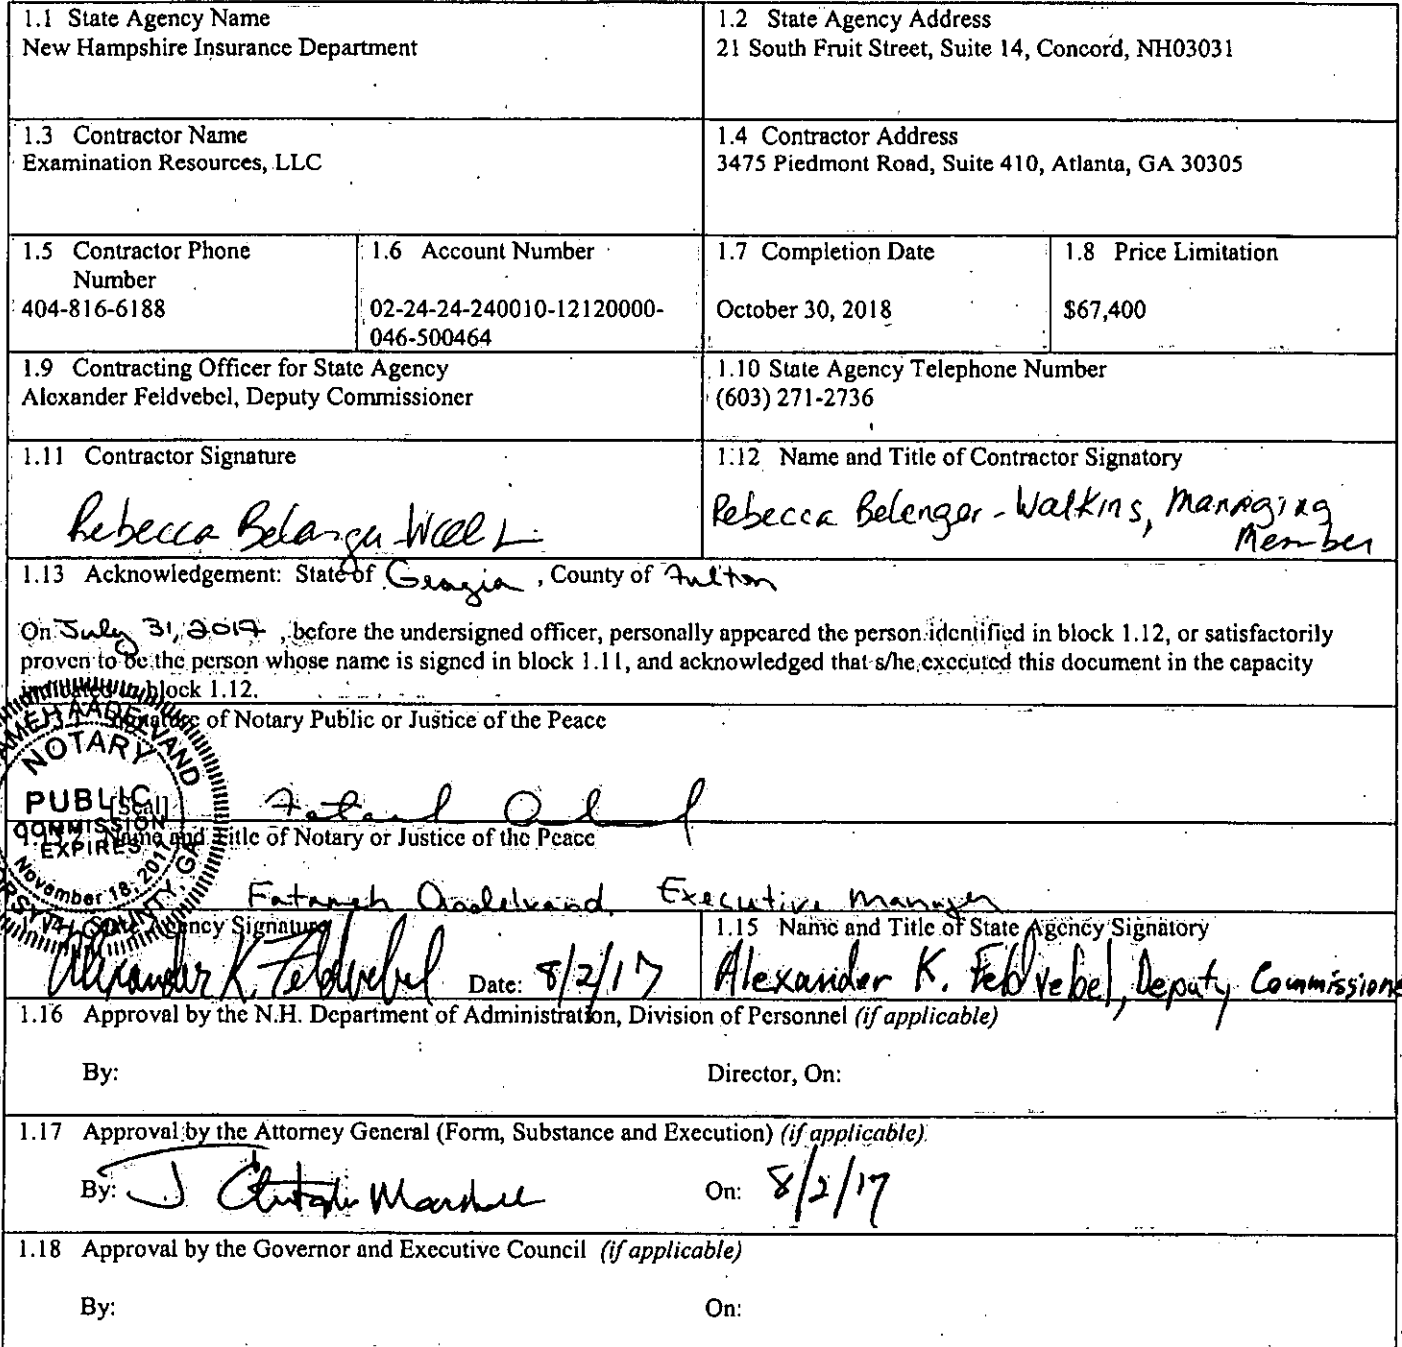 1.1 State Agency Name
New Hampshire Insurance Department
1.2 State Agency Address
21 South Fruit Street, Suite 14, Concord, NH03031
1.3 Contractor Name
Examination Resources, LLC
1.4 Contractor Address
3475 Piedmont Road, Suite 410, Atlanta, GA 30305
1.5 Contractor Phone
Number
404-816-6188
1.6 Account Number
02-24-24-240010-12120000-
046-500464
1.7 Completion Date
October 30, 2018
1.8 Price Limitation
$67,400
1.9 Contracting Officer for State Agency
Alexander Feldvebel, Deputy Commissioner
1.10 State Agency Telephone Number
(603) 271-2736
1.11 Contractor Signature
Rebecca
1.12 Name and Title of Contractor Signatory
Rebecca Belenger-Walkins, Managing
Member
1.13 Acknowledgement: State of Georgia, County of Fulton
On July 31, 2017, before the undersigned officer, personally appeared the person identified in block 1.12, or satisfactorily
proven to be the person whose name is signed in block 1.11, and acknowledged that s/he executed this document in the capacity
indicated in block 1.12.
Signature of Notary Public or Justice of the Peace
NOTARY
PUBLIC
[Seal]
COMMISSION
EXPIRES
November 18, 2017
COUNTY, GA
Name and Title of Notary or Justice of the Peace
Executive Manager
State Agency Signature
Alexander K. Feldvebel Date: 8/2/17
1.15 Name and Title of State Agency Signatory
Alexander K. Feldvebel, Deputy Commissione
1.16 Approval by the N.H. Department of Administration, Division of Personnel (if applicable)
By:
Director, On:
1.17 Approval by the Attorney General (Form, Substance and Execution) (if applicable)
By: J Marshall
On: 8/2/17
1.18 Approval by the Governor and Executive Council (if applicable)
By:
On: